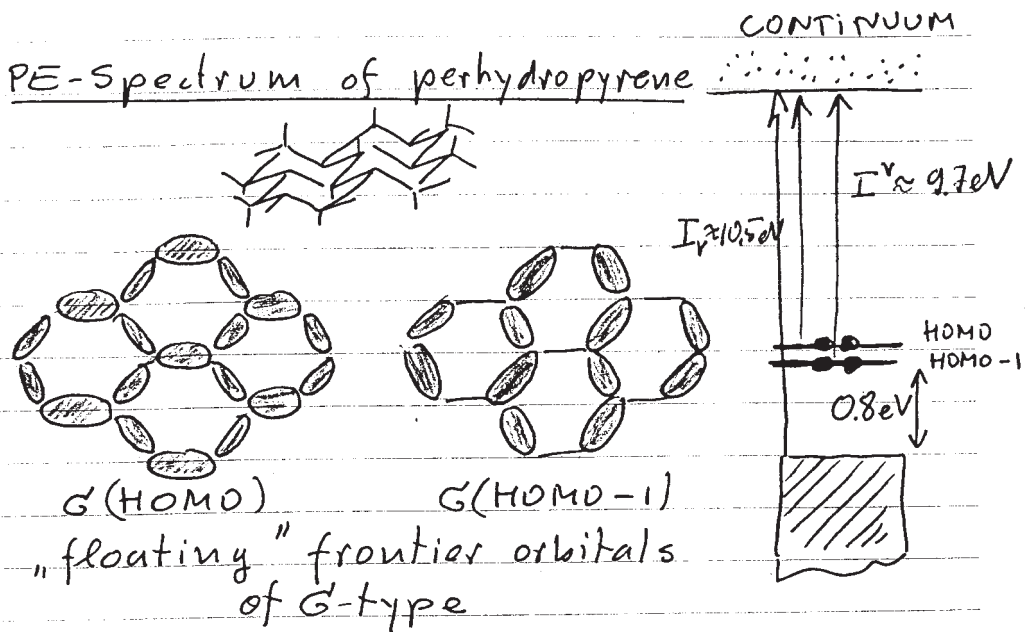 CONTINUUM
PE-Spectrum of perhydropyrene
I^v ≈ 9.7eV
I_v ≈ 10.5eV
HOMO
HOMO-1
0.8eV
σ(HOMO) σ(HOMO-1)
„floating" frontier orbitals
of σ-type